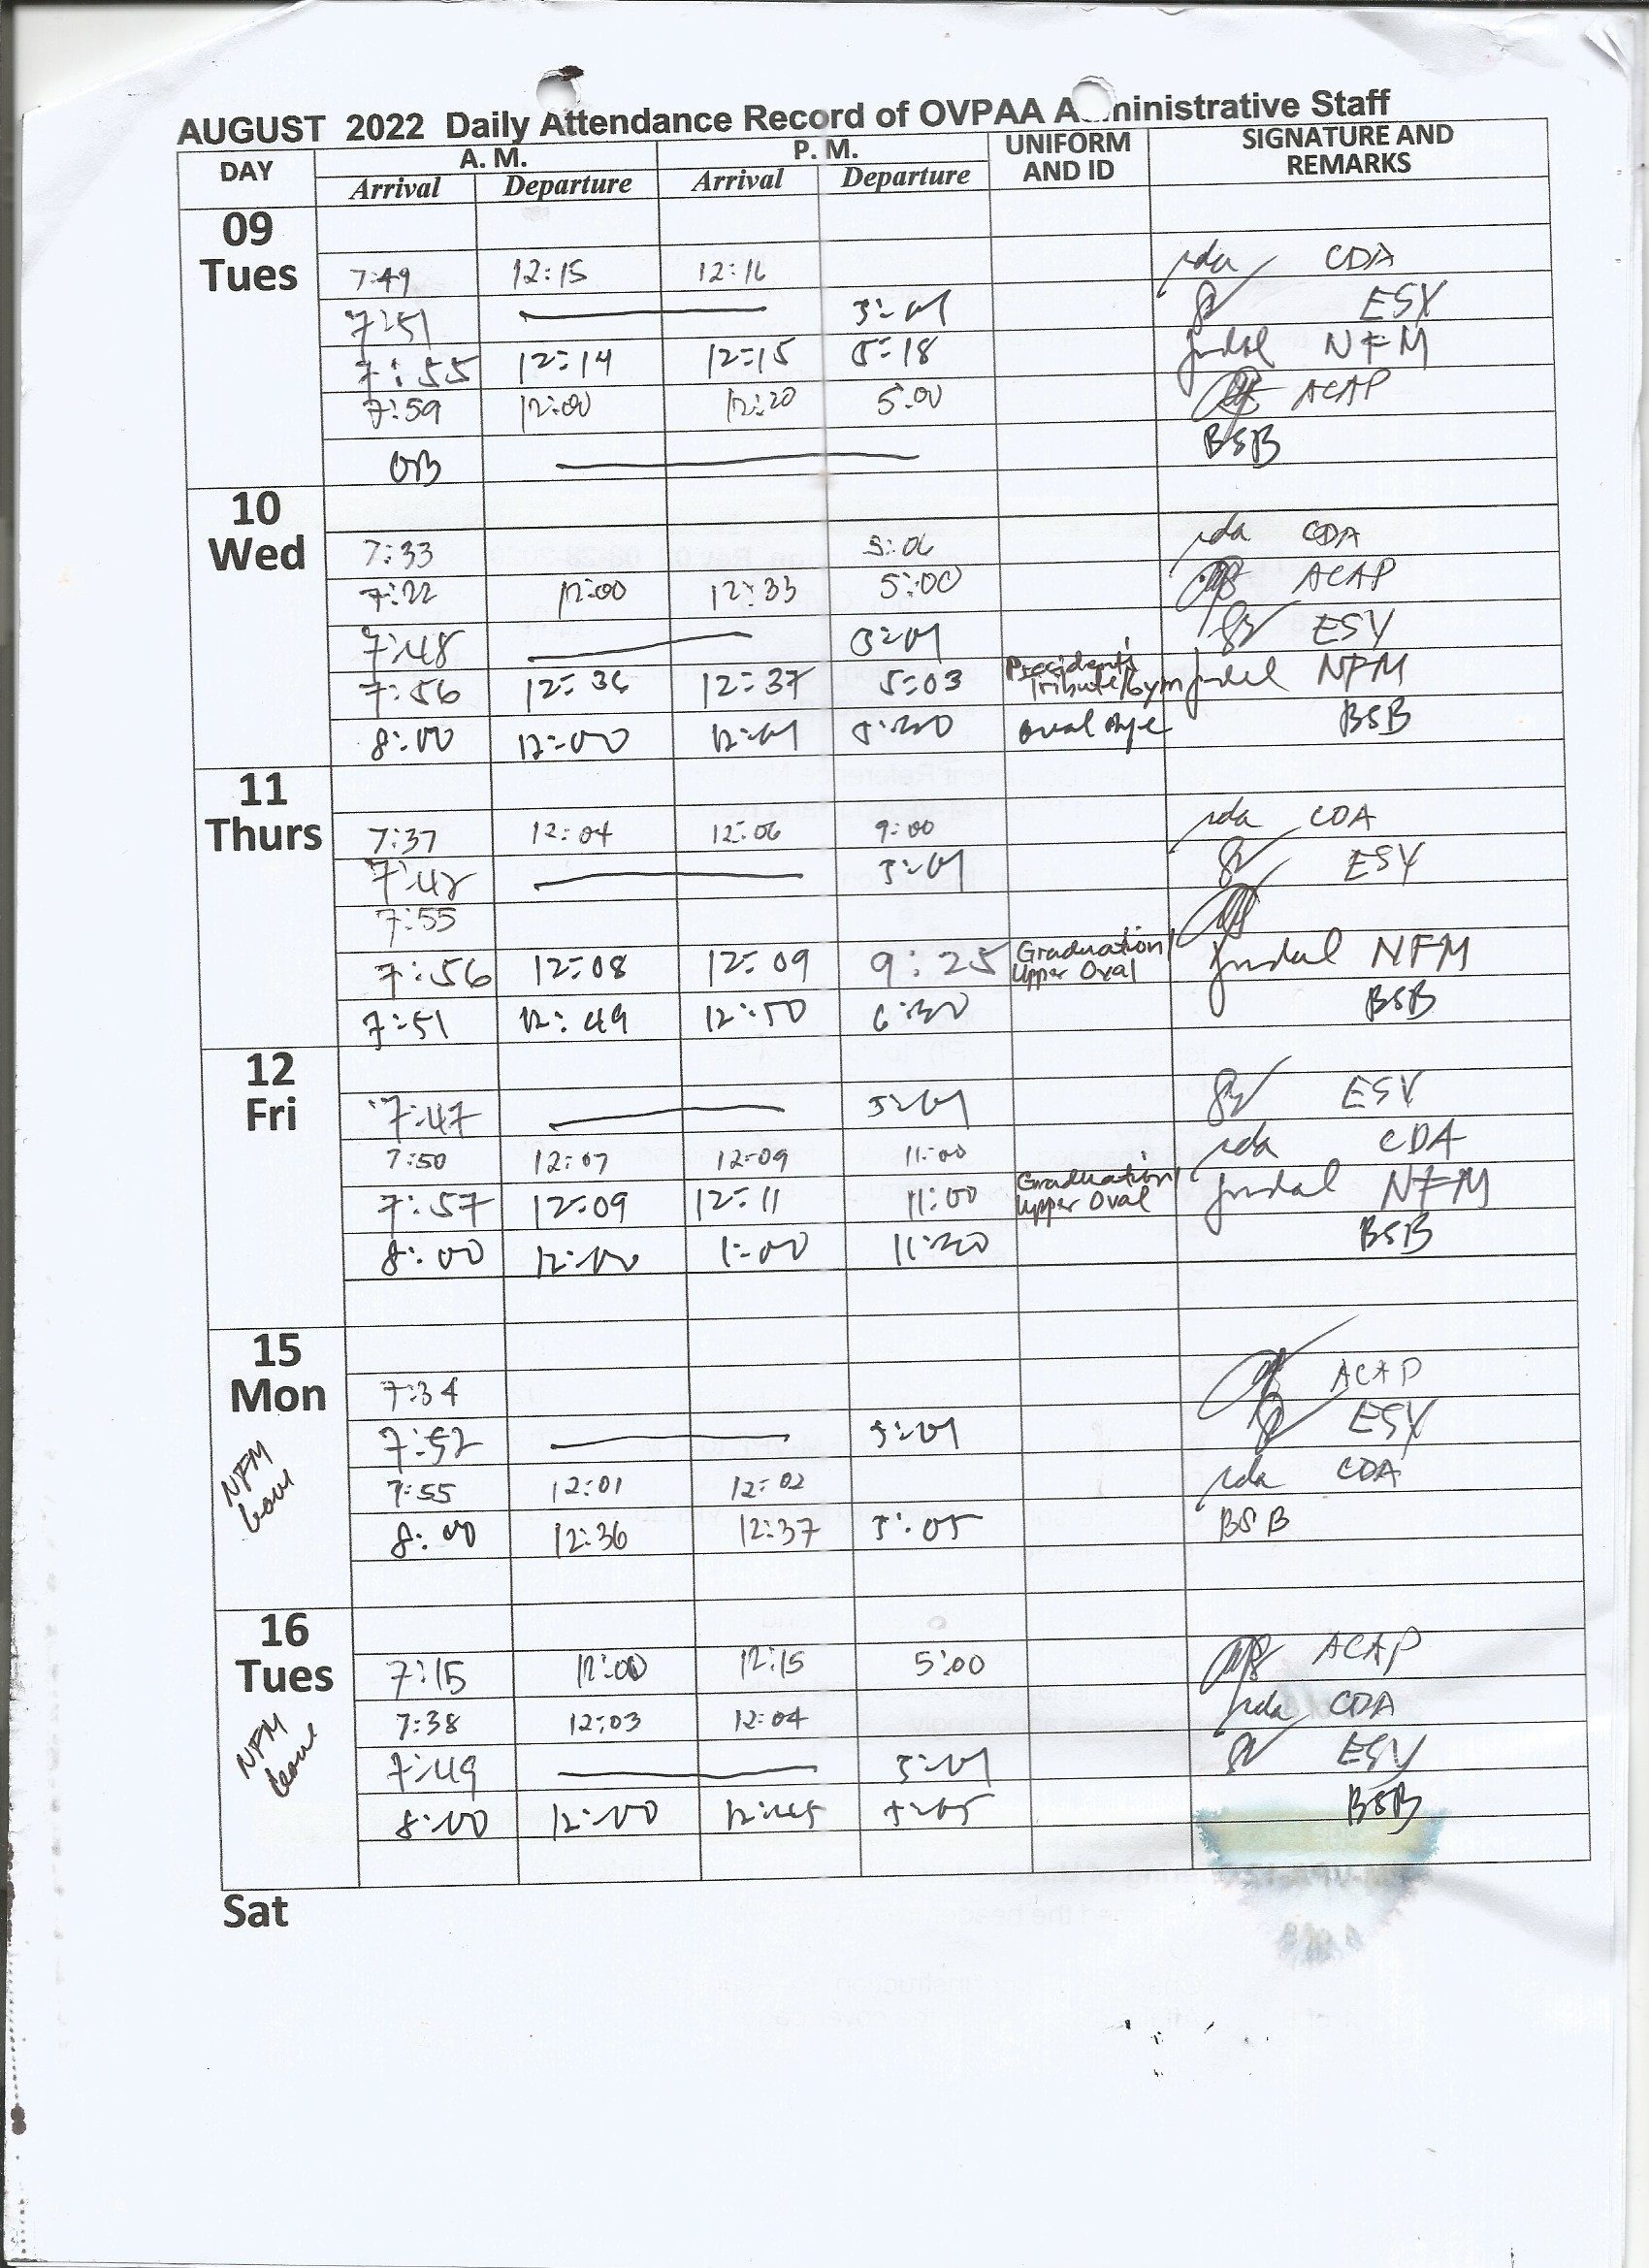 AUGUST 2022 Daily Attendance Record of OVPAA A ministrative Staff
DAY A. M. P. M. UNIFORM AND ID SIGNATURE AND REMARKS
Arrival Departure Arrival Departure
09 Tues
7:49 12:15 12:16 CDA
7:51 5:01 ESY
7:55 12:14 12:15 5:18 NFM
7:59 12:00 12:20 5:00 ACAP
OB BSB
10 Wed
7:33 5:06 CDA
7:22 12:00 12:33 5:00 ACAP
7:48 5:01 ESY
7:56 12:36 12:37 5:03 President's Tribute/Gym NFM
8:00 12:00 12:01 5:30 BSB
11 Thurs
7:37 12:04 12:06 9:00 CDA
7:48 5:01 ESY
7:55
7:56 12:08 12:09 9:25 Graduation/ Upper Oval NFM
7:51 12:49 12:50 6:30 BSB
12 Fri
7:47 5:01 ESY
7:50 12:07 12:09 11:00 CDA
7:57 12:09 12:11 11:00 Graduation/ Upper Oval NFM
8:00 12:00 1:00 11:30 BSB
15 Mon
NFM leave
7:34 ACAP
7:52 5:01 ESY
7:55 12:01 12:02 CDA
8:00 12:36 12:37 5:05 BSB
16 Tues
NFM leave
7:15 12:00 12:15 5:00 ACAP
7:38 12:03 12:04 CDA
7:49 5:01 ESY
8:00 12:00 12:45 5:05 BSB
Sat